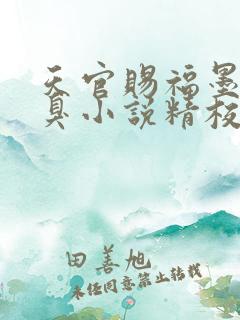 天官赐福墨
臭小说精校
田善旭
未经同意禁止转载